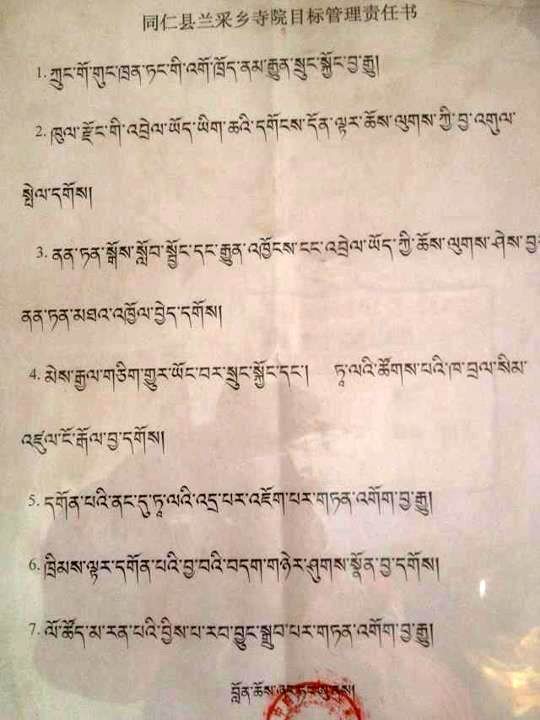 同仁县兰采乡寺院目标管理责任书
1. ཀྲུང་གོ་གུང་ཁྲན་ཏང་གི་འགོ་ཁྲིད་ནམ་རྒྱུན་སྲུང་སྐྱོང་བྱ་རྒྱུ།
2. ཁུལ་རྫོང་གི་འབྲེལ་ཡོད་ཡིག་ཆའི་དགོངས་དོན་ལྟར་ཆོས་ལུགས་ཀྱི་བྱ་འགུལ་
སྤེལ་དགོས།
3. ནན་ཏན་སྒོས་སློབ་སྦྱོང་དང་རྒྱུན་འཁྱོངས་ངང་འབྲེལ་ཡོད་ཀྱི་ཆོས་ལུགས་ཤེས་བྱ
ནན་ཏན་མཐའ་འཁྱོལ་བྱེད་དགོས།
4. མེས་རྒྱལ་གཅིག་གྱུར་ཡོང་བར་སྲུང་སྐྱོང་དང་། ཏཱ་ལའི་ཚོགས་པའི་ཁ་བྲལ་སིམ་
འཛུལ་ངོ་རྒོལ་བྱ་དགོས།
5. དགོན་པའི་ནང་དུ་ཏཱ་ལའི་འདྲ་པར་འཇོག་པར་གཏན་འགོག་བྱ་རྒྱུ།
6. ཁྲིམས་ལྟར་དགོན་པའི་བྱ་བའི་བདག་གཉེར་ཤུགས་སྣོན་བྱ་དགོས།
7. ལོ་ཚོད་མ་རན་པའི་བྱིས་པ་རབ་བྱུང་སྒྲུབ་པར་གཏན་འགོག་བྱ་རྒྱུ།